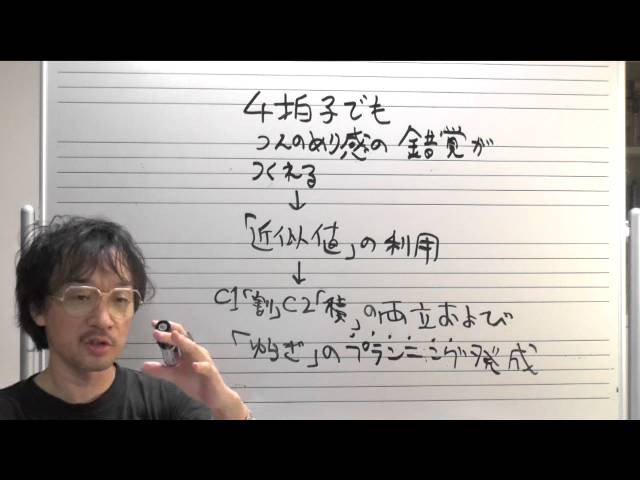 4拍子でも
つんのめり感の錯覚が
つくれる
↓
「近似値」の利用
↓
C1「割」C2「積」の両立および
「ゆらぎ」のプランニング発成